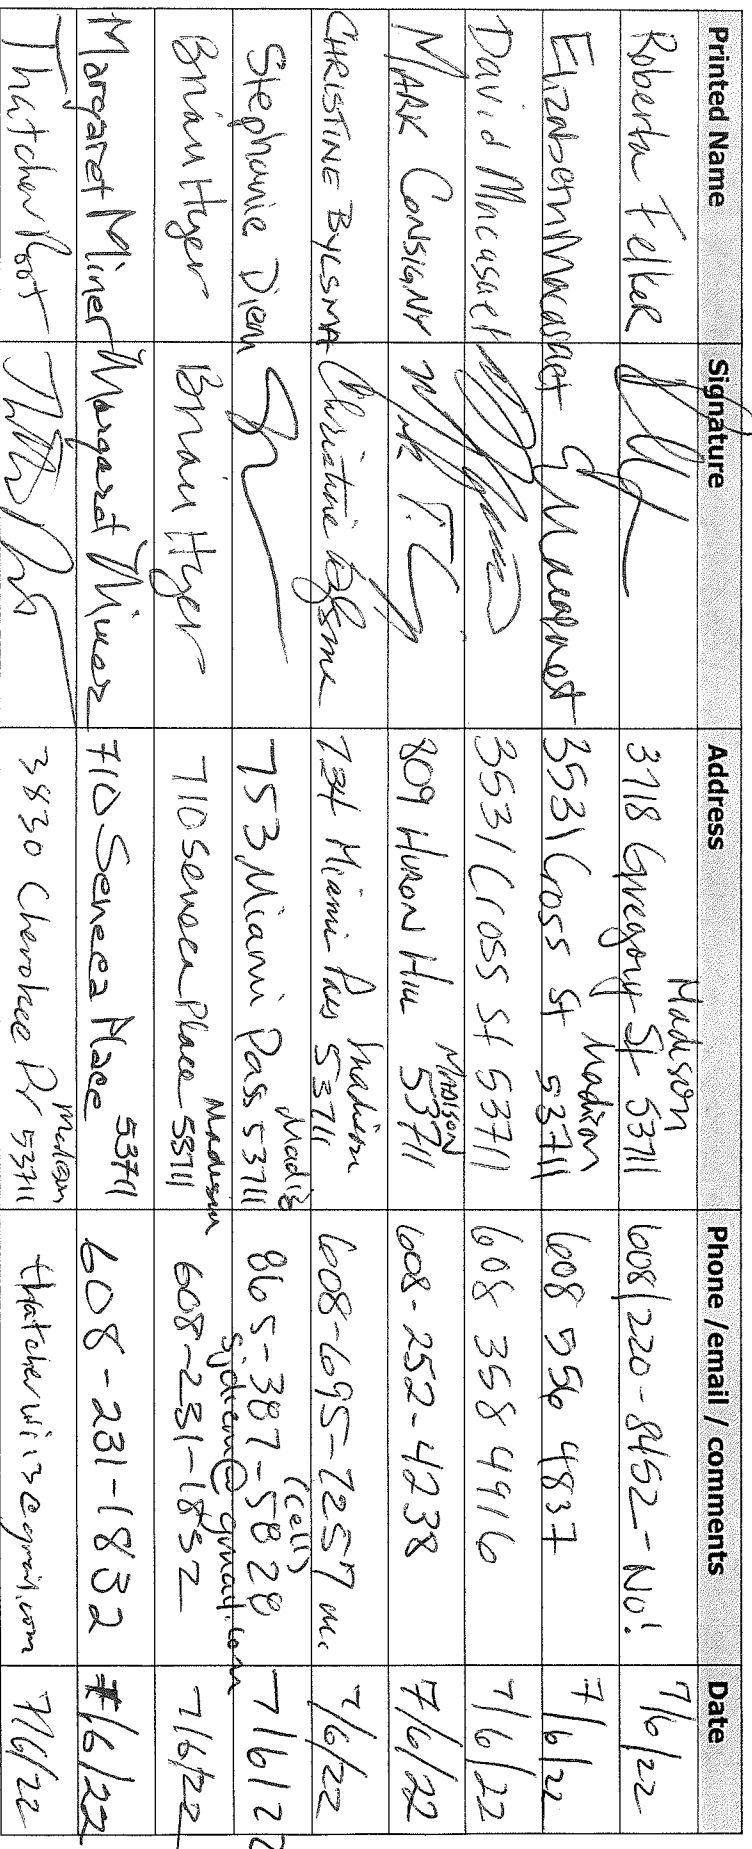 Printed Name Signature Address Phone /email / comments Date
Roberta Felker 3718 Gregory St 53711 Madison 608/220-8452 - No! 7/6/22
Elizabeth Macasaet E Macasaet 3531 Cross St 53711 Madison 608 556 4837 7/6/22
David Macasaet 3531 Cross St 53711 608 358 4916 7/6/22
MARK CONSIGNY 809 HURON HILL MADISON 53711 608-252-4238 7/6/22
CHRISTINE BYLSMA Christine Bylsma 734 Miami Pass Madison 53711 608-695-7257 m. 7/6/22
Stephanie Diem 753 Miami Pass 53711 865-387-5828 (cell) sjdiem@gmail.com 7/6/22
Brian Hyer Brian Hyer 710 Seneca Place Madison 53711 608-231-1832 7/6/22
Margaret Miner Margaret Miner 710 Seneca Place 53711 608-231-1832 7/6/22
Thatcher Root 3830 Cherokee Dr Madison 53711 7/6/22